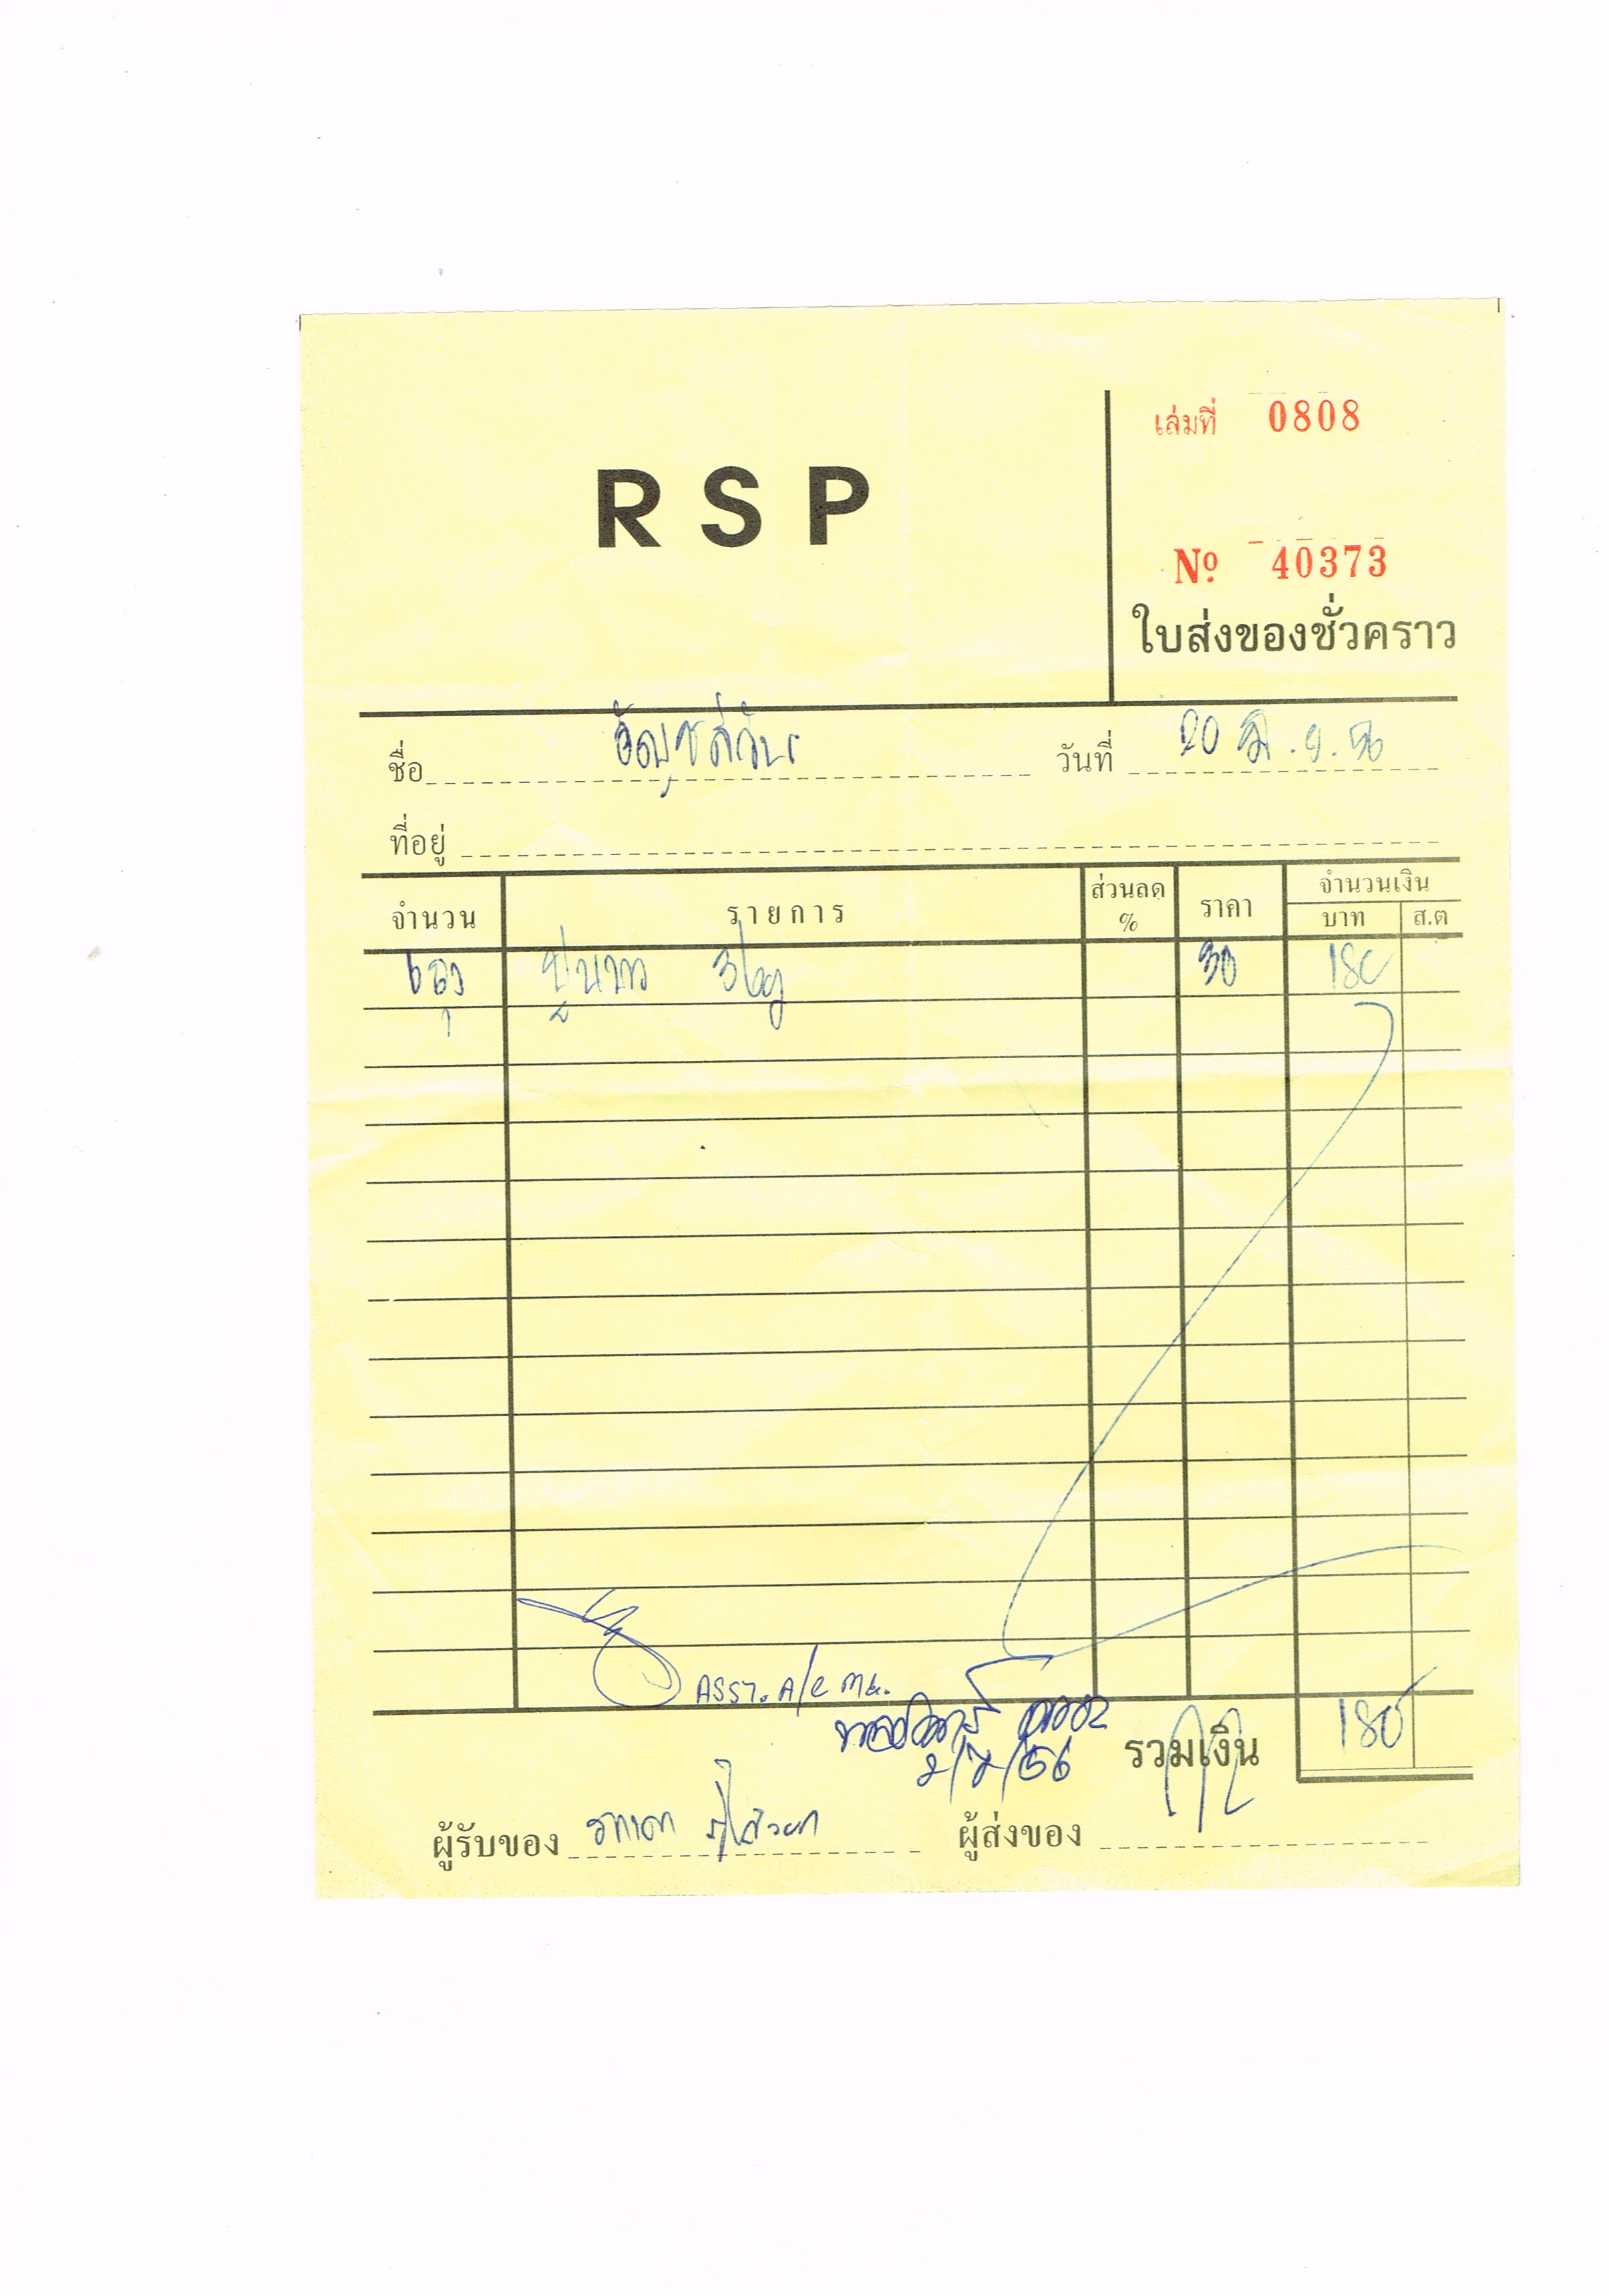 เล่มที่ 0808
R S P
Nº 40373
ใบส่งของชั่วคราว
ชื่อ วันที่ 20 มิ.ย. 56
ที่อยู่
จำนวน รายการ ส่วนลด % ราคา จำนวนเงิน
บาท ส.ต
6 ถุง ปูนขาว 3kg 30 180
ASST. A/C
2/7/56
รวมเงิน 180
ผู้รับของ ผู้ส่งของ